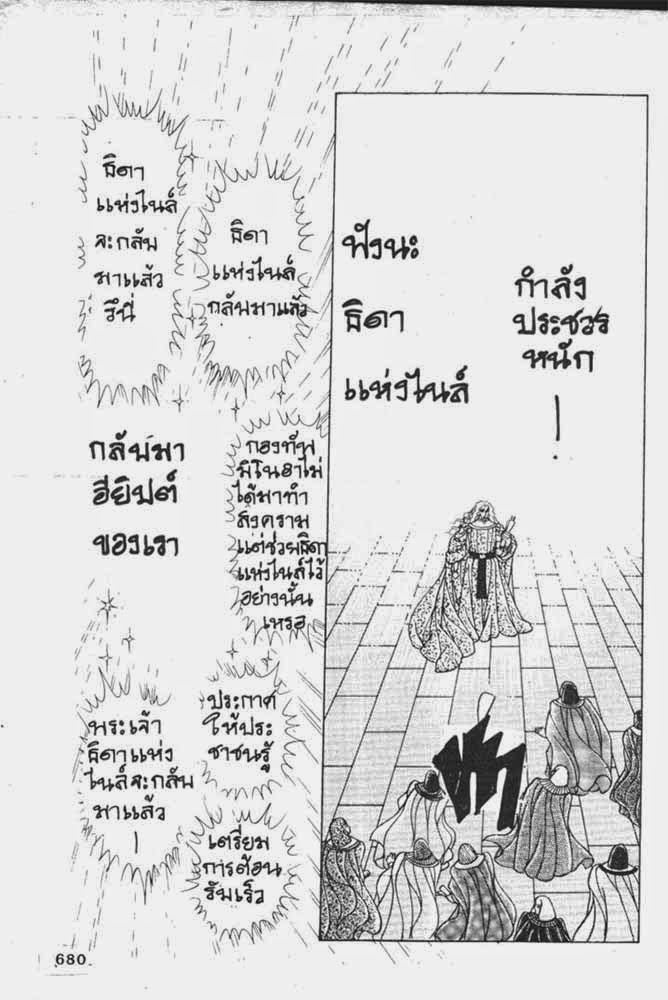 กำลัง
ประชวร
หนัก
!
ฟังนะ
ธิดา
แห่งไนล์
ธิดา
แห่งไนล์
กลับมาแล้ว
ธิดา
แห่งไนล์
จะกลับ
มาแล้ว
รึนี่
กองทัพ
มิโนอาไม่
ได้มาทำ
สงคราม
แต่ช่วยธิดา
แห่งไนล์ไว้
อย่างนั้น
เหรอ
กลับมา
อียิปต์
ของเรา
ประกาศ
ให้ประ
ชาชนรู้
พระเจ้า
ธิดาแห่ง
ไนล์จะกลับ
มาแล้ว
!
เตรียม
การต้อน
รับเร็ว
680